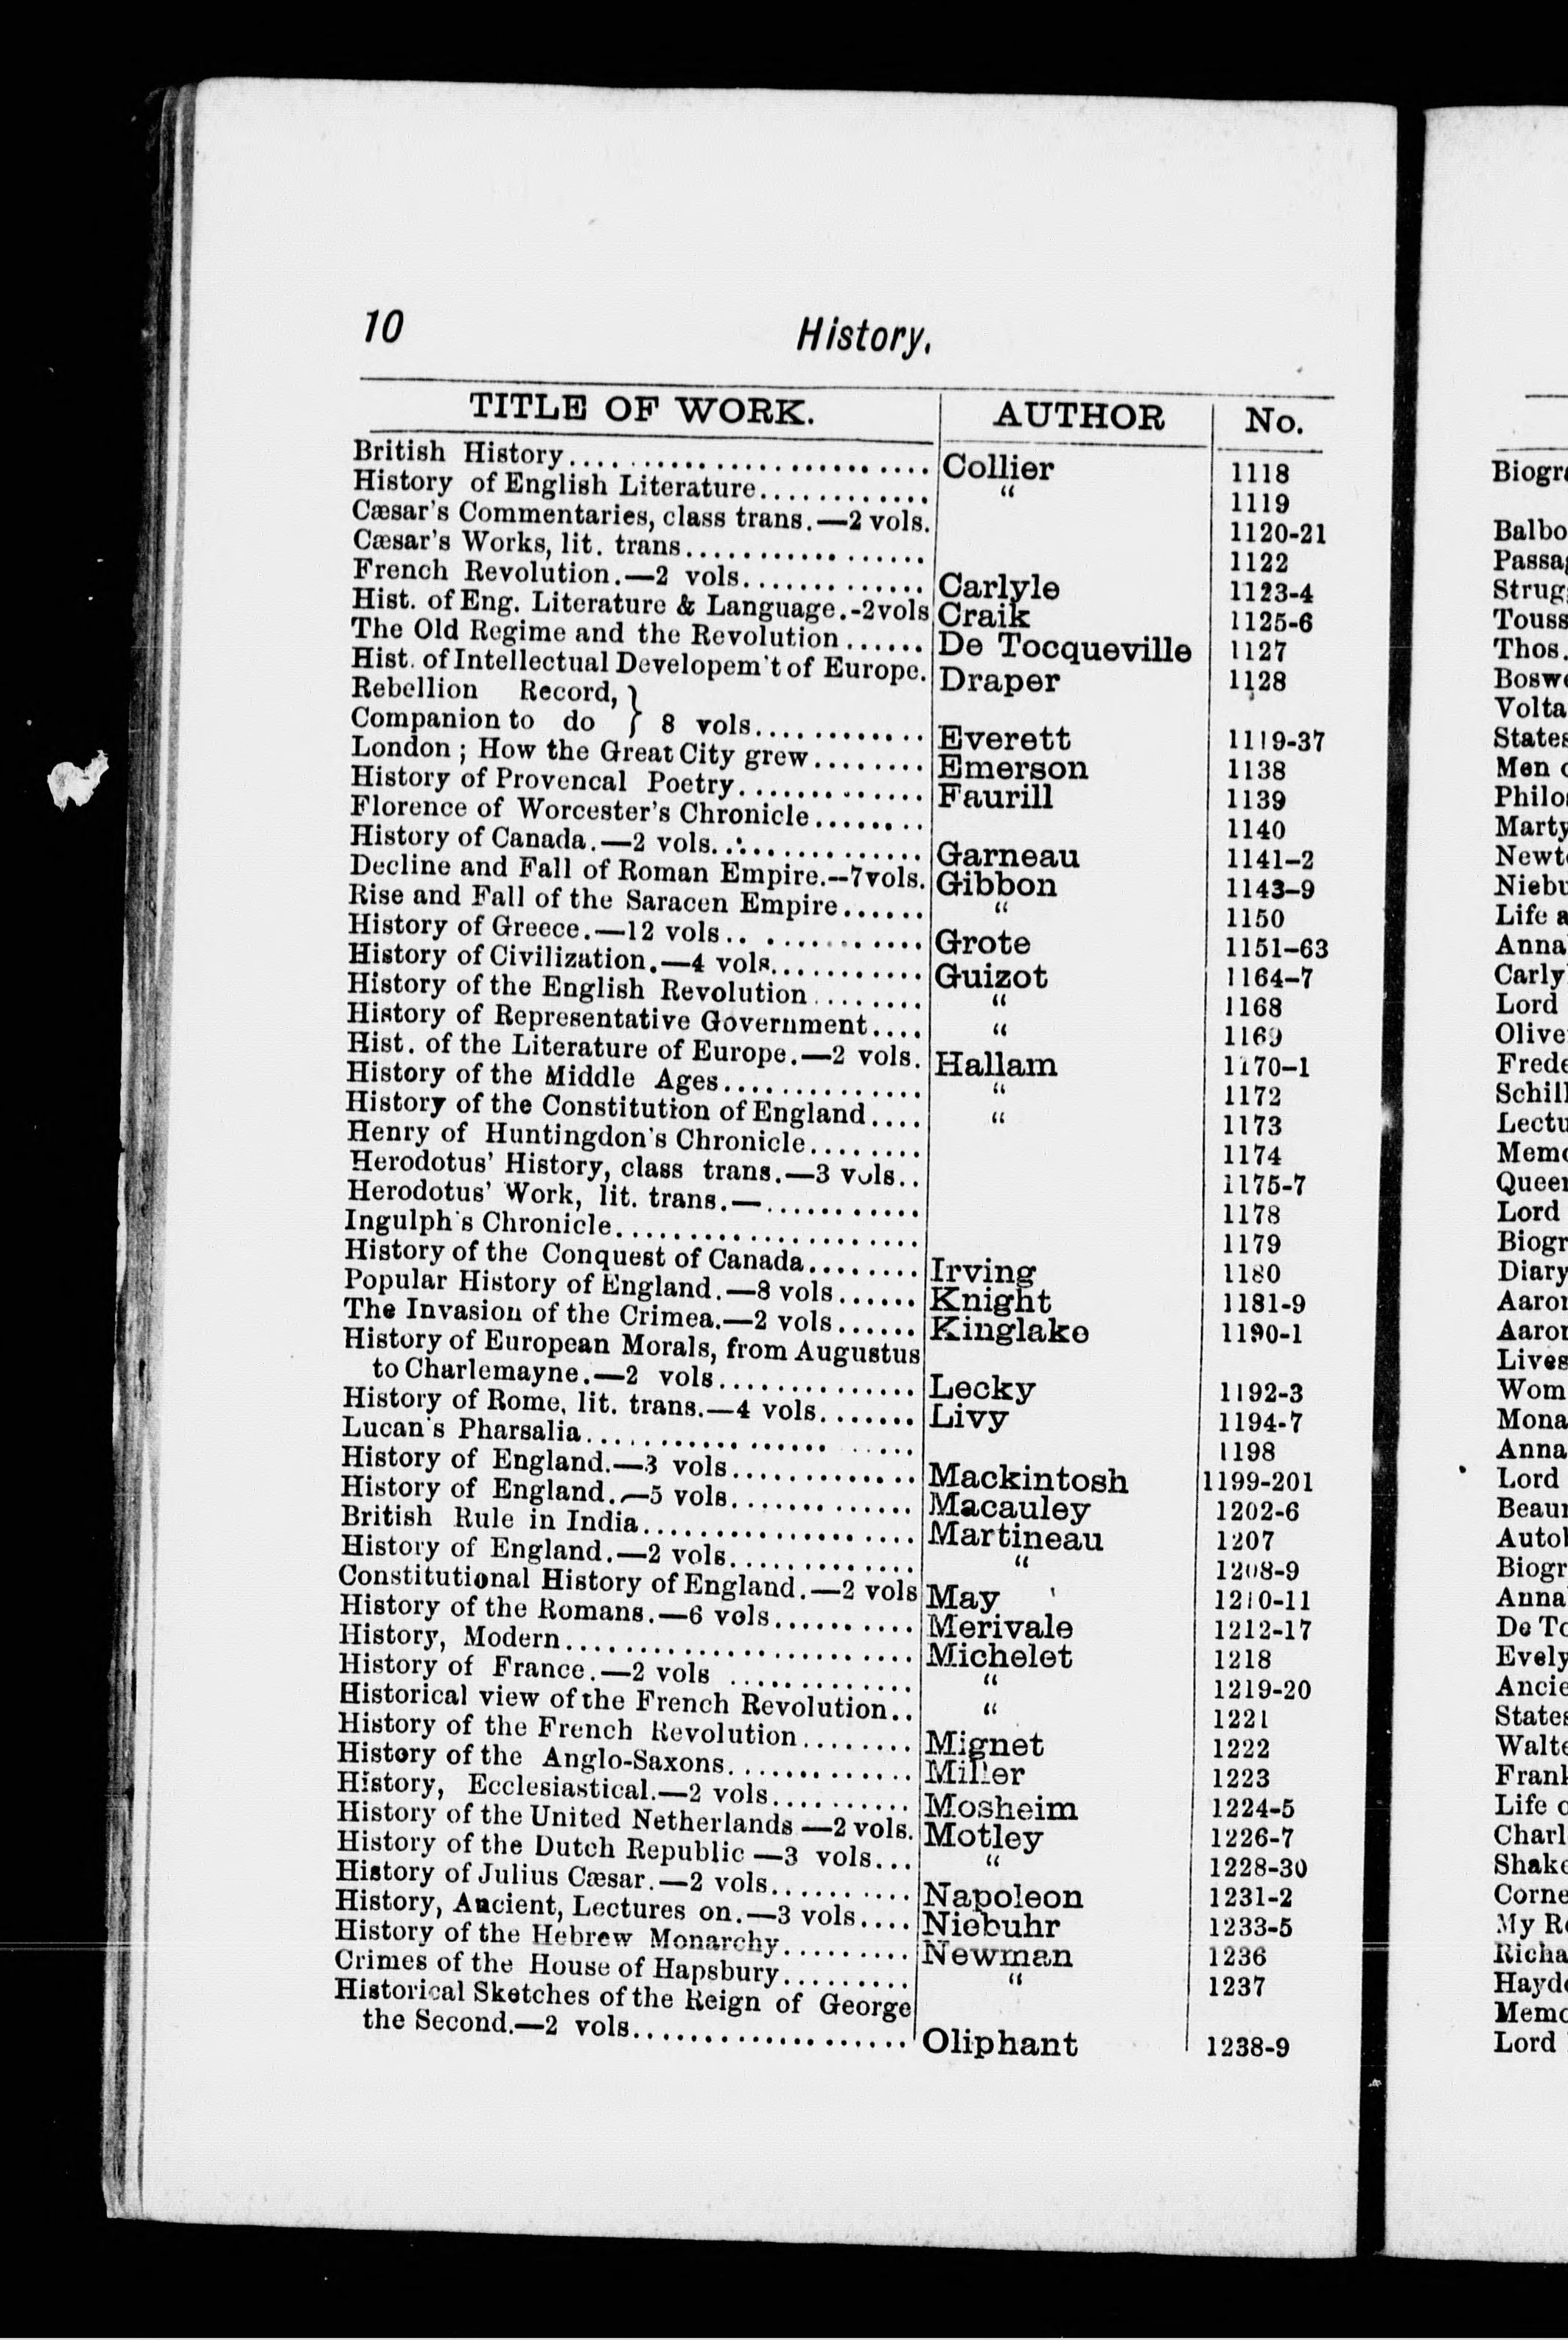 10 History.
TITLE OF WORK. AUTHOR No.
British History.......................... Collier 1118
History of English Literature............ “ 1119
Cæsar's Commentaries, class trans.—2 vols. 1120-21
Cæsar's Works, lit. trans.................. 1122
French Revolution.—2 vols............. Carlyle 1123-4
Hist. of Eng. Literature & Language.-2vols Craik 1125-6
The Old Regime and the Revolution...... De Tocqueville 1127
Hist. of Intellectual Developem't of Europe. Draper 1128
Rebellion Record, }
Companion to do } 8 vols............ Everett 1119-37
London ; How the Great City grew........ Emerson 1138
History of Provencal Poetry............. Faurill 1139
Florence of Worcester's Chronicle........ 1140
History of Canada.—2 vols............... Garneau 1141-2
Decline and Fall of Roman Empire.—7vols. Gibbon 1143-9
Rise and Fall of the Saracen Empire...... “ 1150
History of Greece.—12 vols............. Grote 1151-63
History of Civilization.—4 vols........... Guizot 1164-7
History of the English Revolution........ “ 1168
History of Representative Government.... “ 1169
Hist. of the Literature of Europe.—2 vols. Hallam 1170-1
History of the Middle Ages............... “ 1172
History of the Constitution of England.... “ 1173
Henry of Huntingdon's Chronicle........ 1174
Herodotus' History, class trans.—3 vols.. 1175-7
Herodotus' Work, lit. trans.—........... 1178
Ingulph's Chronicle...................... 1179
History of the Conquest of Canada........ Irving 1180
Popular History of England.—8 vols...... Knight 1181-9
The Invasion of the Crimea.—2 vols...... Kinglake 1190-1
History of European Morals, from Augustus
to Charlemayne.—2 vols.............. Lecky 1192-3
History of Rome, lit. trans.—4 vols....... Livy 1194-7
Lucan's Pharsalia...................... 1198
History of England.—3 vols.............. Mackintosh 1199-201
History of England.—5 vols............. Macauley 1202-6
British Rule in India.................... Martineau 1207
History of England.—2 vols.............. “ 1208-9
Constitutional History of England.—2 vols May 1210-11
History of the Romans.—6 vols.......... Merivale 1212-17
History, Modern......................... Michelet 1218
History of France.—2 vols .............. “ 1219-20
Historical view of the French Revolution.. “ 1221
History of the French Revolution........ Mignet 1222
History of the Anglo-Saxons............. Miller 1223
History, Ecclesiastical.—2 vols.......... Mosheim 1224-5
History of the United Netherlands —2 vols. Motley 1226-7
History of the Dutch Republic —3 vols... “ 1228-30
History of Julius Cæsar.—2 vols.......... Napoleon 1231-2
History, Ancient, Lectures on.—3 vols.... Niebuhr 1233-5
History of the Hebrew Monarchy......... Newman 1236
Crimes of the House of Hapsbury......... “ 1237
Historical Sketches of the Reign of George
the Second.—2 vols................... Oliphant 1238-9
Balbo
Thos.
Men
Life
Lord
Lord
Diary
Lives
Lord
Life
My
Lord